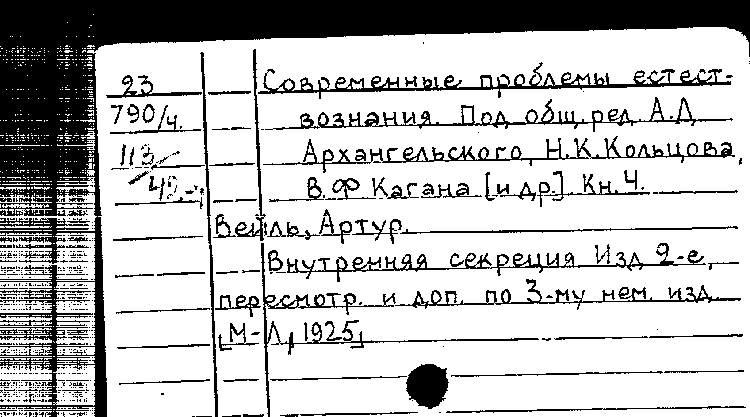 23 Современные проблемы естест-
790/4. вознания. Под общ. ред. А.Д
113 Архангельского, Н.К. Кольцова,
В.Ф Кагана [и др.]. Кн. 4.
Вейль, Артур.
Внутренняя секреция Изд 2-е,
пересмотр. и доп. по 3-му нем. изд
[М-Л, 1925]